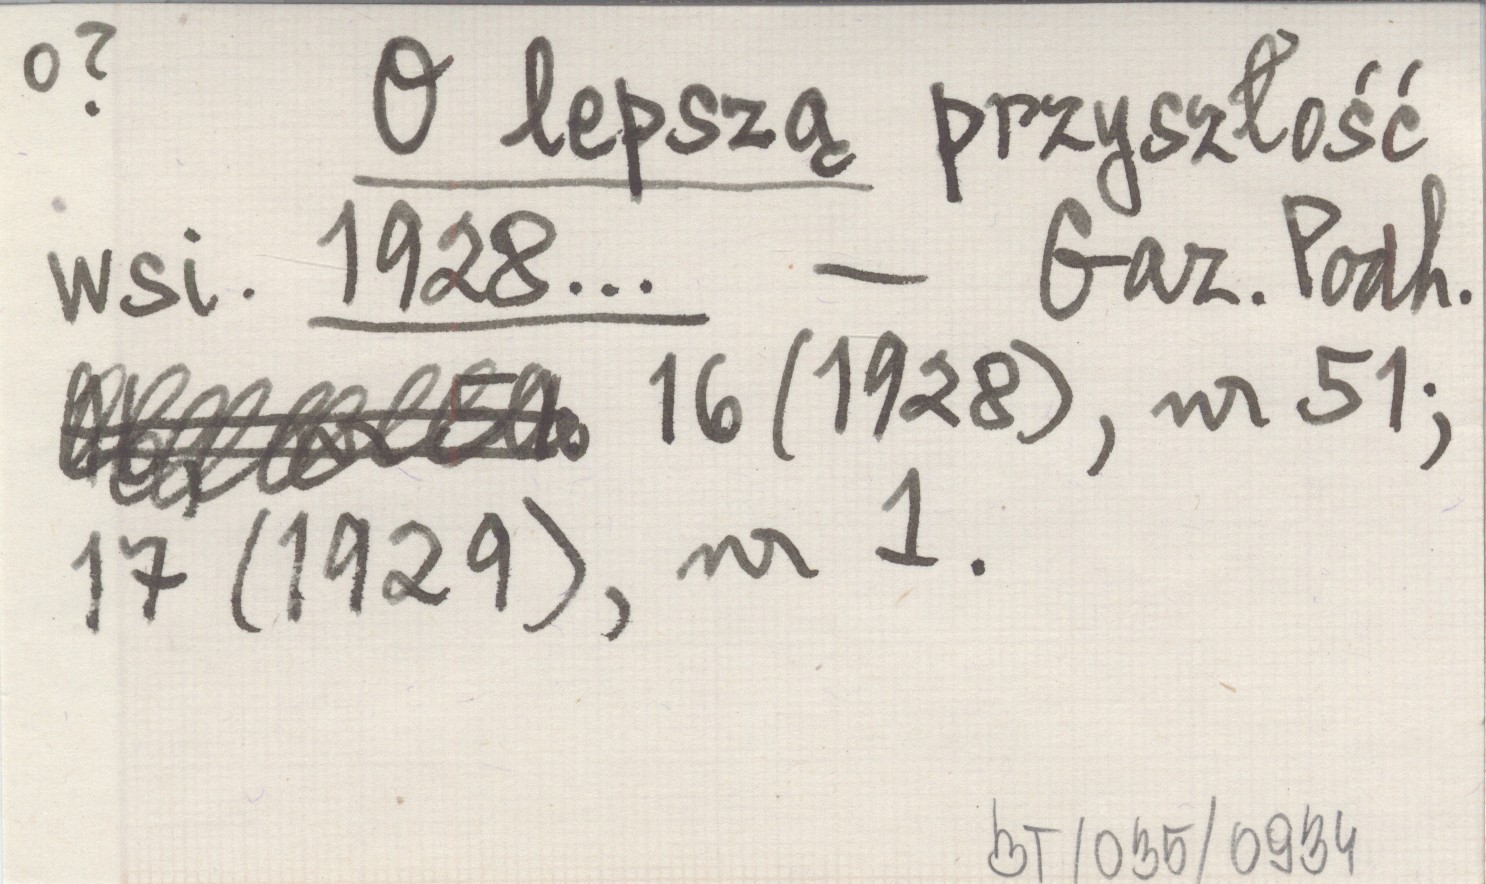 o?
O lepszą przyszłość
wsi. 1928... — Gaz. Podh.
16 (1928), nr 51;
17 (1929), nr 1.
BT/035/0934